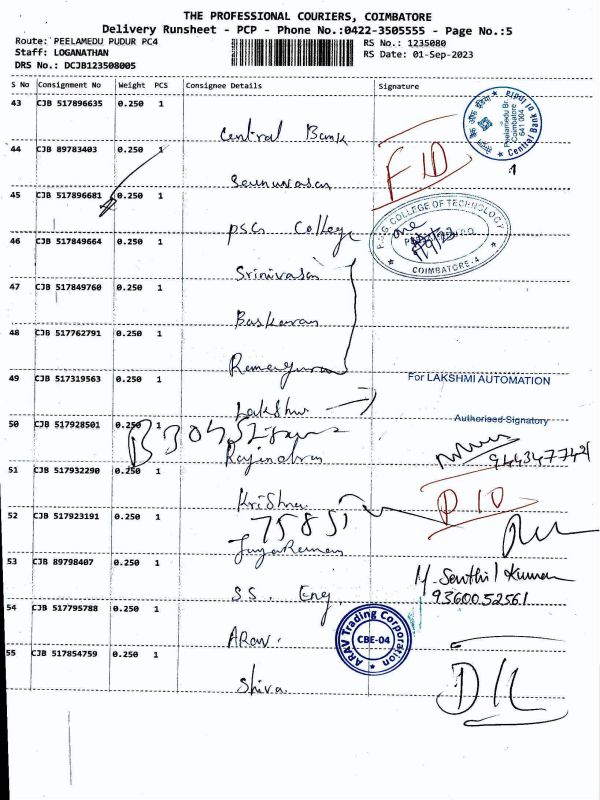 THE PROFESSIONAL COURIERS, COIMBATORE
Delivery Runsheet - PCP - Phone No.:0422-3505555 - Page No.:5
Route: PEELAMEDU PUDUR PC4
RS No.: 1235080
Staff: LOGANATHAN
RS Date: 01-Sep-2023
DRS No.: DCJB123508005
S No Consignment No Weight PCS Consignee Details Signature
43 CJB 517896635 0.250 1
Central Bank
Peelamedu Br.
Coimbatore
641 004
Central Bank of India
1
44 CJB 89783403 0.250 1
FID
45 CJB 517896681 0.250 1
PSG College
P.S.G. COLLEGE OF TECHNOLOGY
COIMBATORE-4
46 CJB 517849664 0.250 1
Srinivasan
47 CJB 517849760 0.250 1
Baskaran
48 CJB 517762791 0.250 1
49 CJB 517319563 0.250 1
For LAKSHMI AUTOMATION
Lakshmi
Authorised Signatory
50 CJB 517928501 0.250 1
51 CJB 517932290 0.250 1
Krishna
52 CJB 517923191 0.250 1
Jayaraman
53 CJB 89798407 0.250 1
M. Senthil Kumar
9360052561
SS. Eng.
54 CJB 517795788 0.250 1
Arav.
ARAV Trading Corporation
CBE-04
55 CJB 517854759 0.250 1
Shiva
D/L